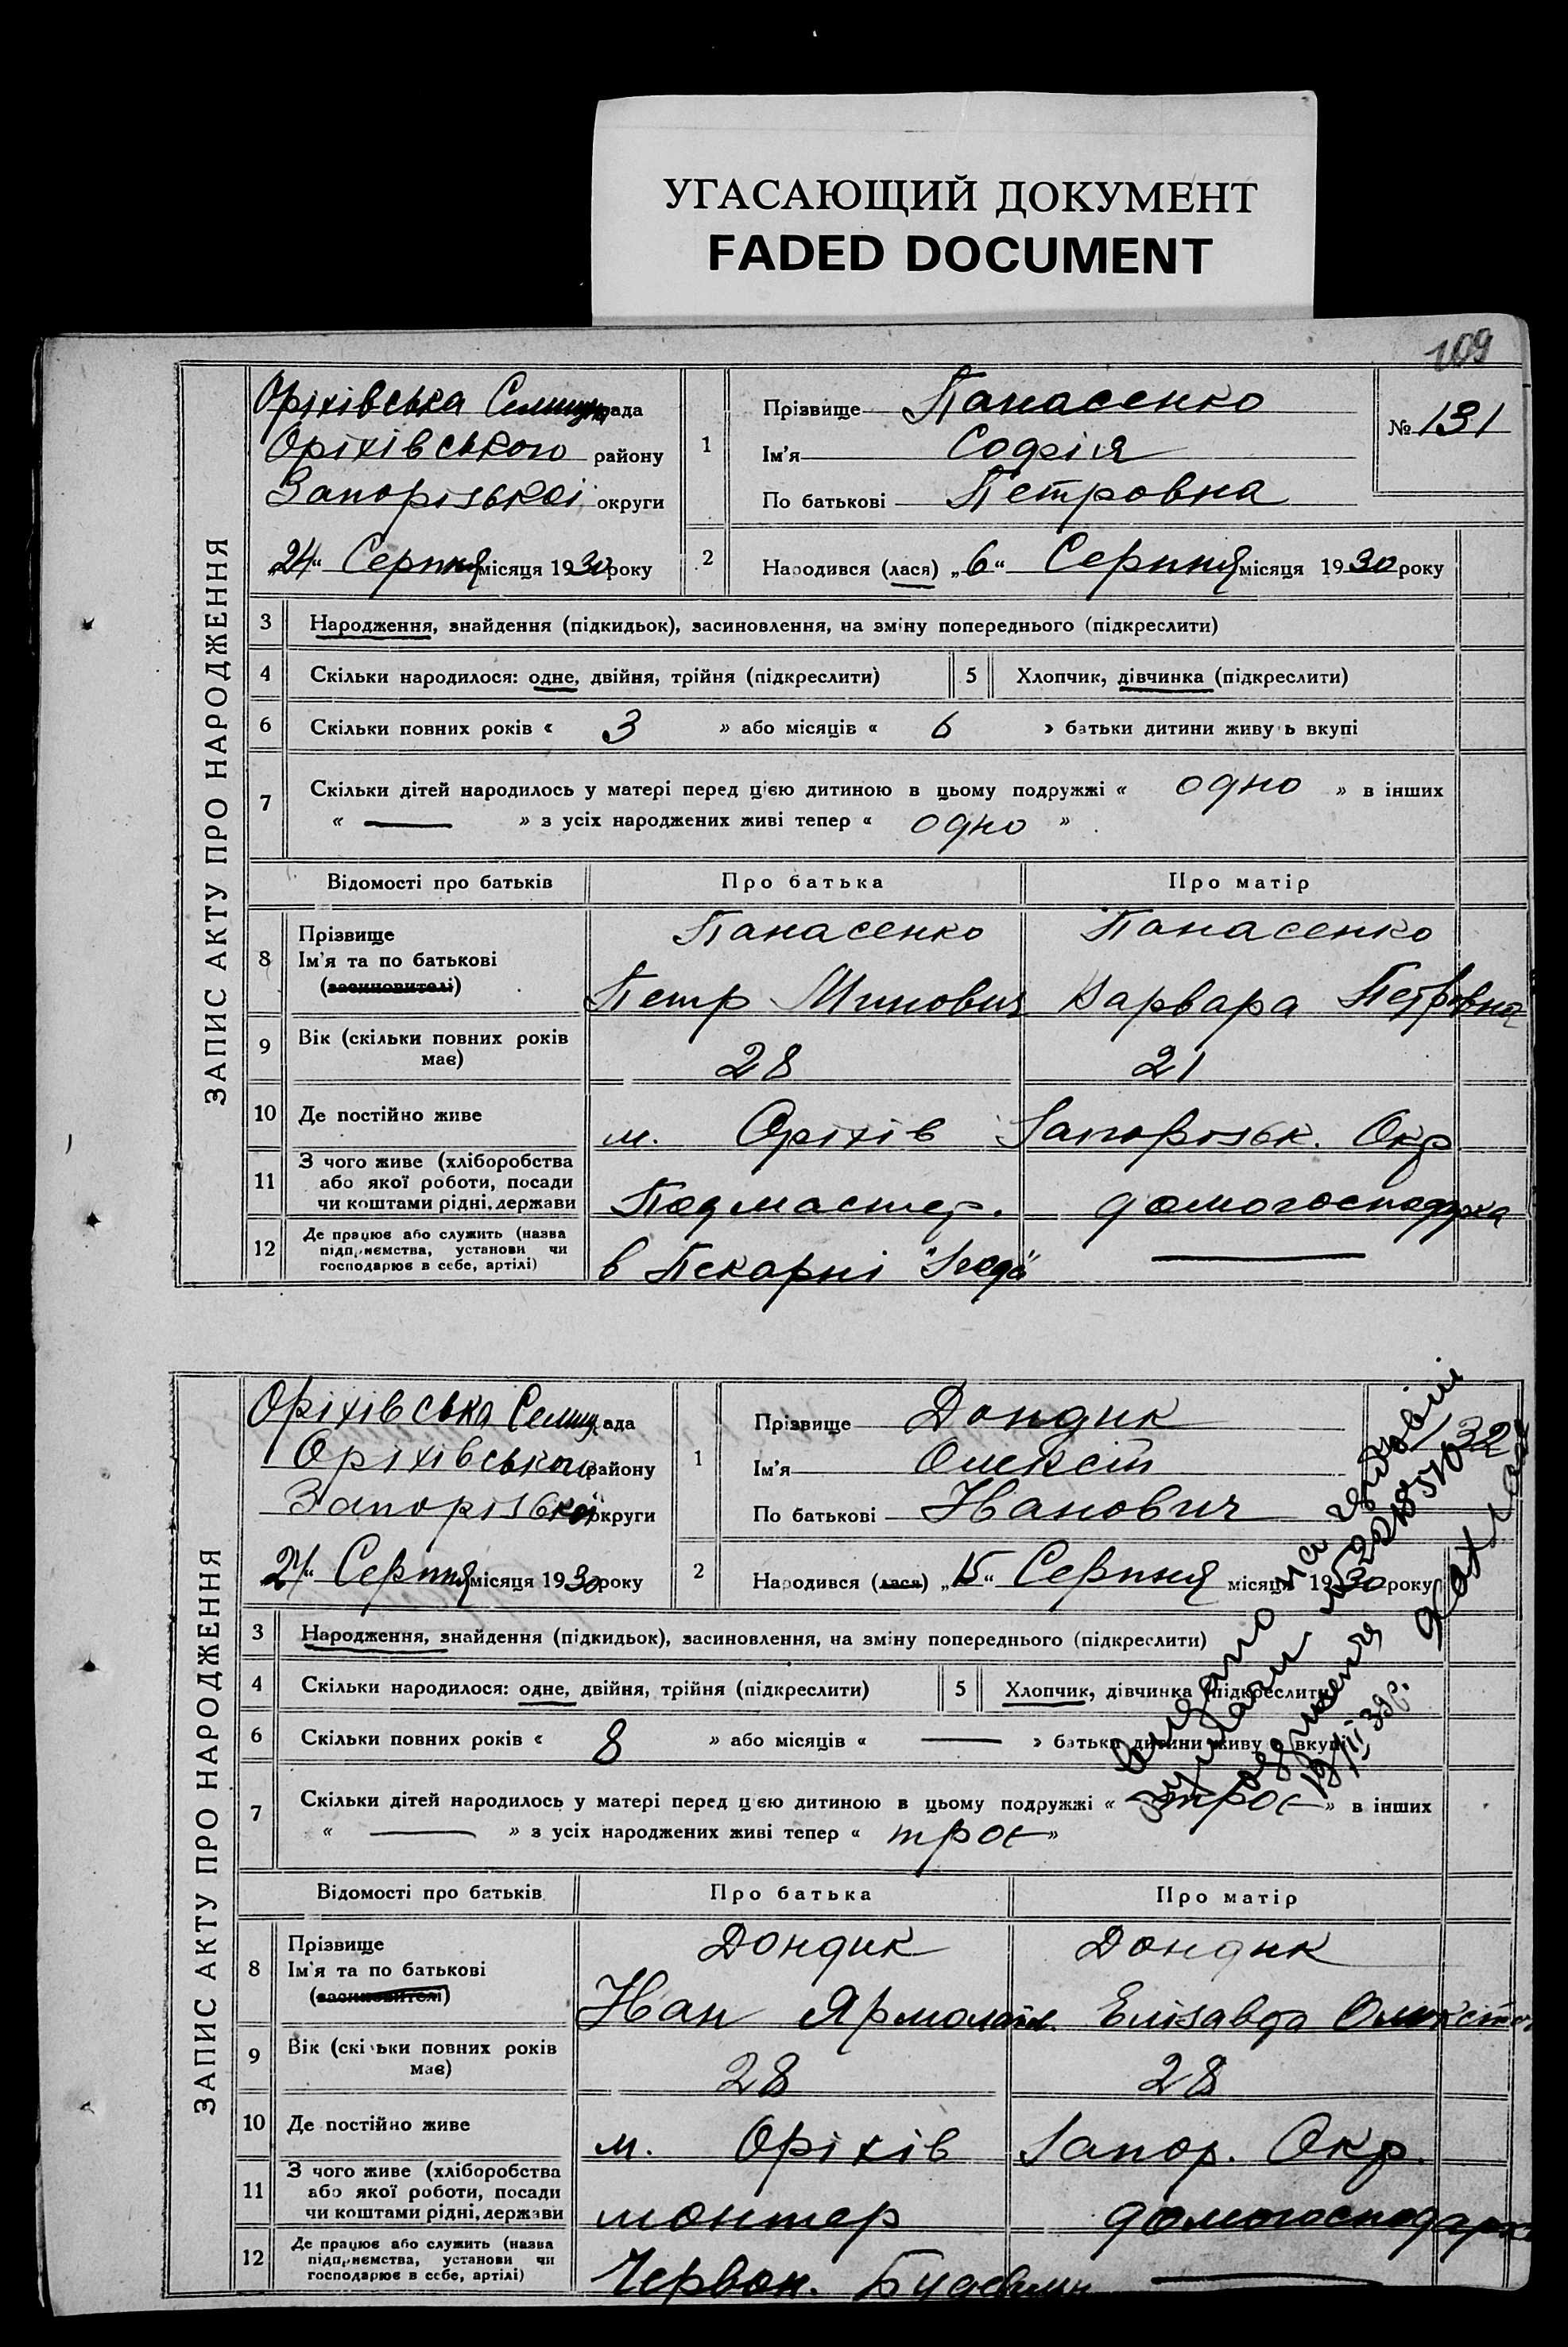 УГАСАЮЩИЙ ДОКУМЕНТ
FADED DOCUMENT
109
ЗАПИС АКТУ ПРО НАРОДЖЕННЯ
Оріхівська Селищ рада
Оріхівського району
Запорізької округи
„24“ Серпня місяця 1930 року
1 Прізвище Панасенко
Ім'я Софія
По батькові Петровна
№ 131
2 Народився (лася) „6“ Серпня місяця 1930 року
3 Народження, знайдення (підкидьок), засиновлення, на зміну попереднього (підкреслити)
4 Скільки народилося: одне, двійня, трійня (підкреслити) 5 Хлопчик, дівчинка (підкреслити)
6 Скільки повних років « 3 » або місяців « 6 » батьки дитини живуть вкупі
7 Скільки дітей народилось у матері перед цією дитиною в цьому подружжі « одно » в інших
« — » з усіх народжених живі тепер « одно »
Відомості про батьків Про батька Про матір
8 Прізвище Ім'я та по батькові (засиновителі)
Панасенко Панасенко
Петр Минович Варвара Петровна
9 Вік (скільки повних років має) 28 21
10 Де постійно живе м. Оріхів Запорізьк. Окр
11 З чого живе (хліборобства або якої роботи, посади чи коштами рідні, держави
Подмастер. домогосподарка
12 Де працює або служить (назва підприємства, установи чи господарює в себе, артілі)
в Пекарні —
ЗАПИС АКТУ ПРО НАРОДЖЕННЯ
Оріхівська Селищ рада
Оріхівського району
Запорізької округи
„24“ Серпня місяця 1930 року
1 Прізвище Дондик
Ім'я Олексій
По батькові Иванович
132
2 Народився (лася) „15“ Серпня місяця 1930 року
3 Народження, знайдення (підкидьок), засиновлення, на зміну попереднього (підкреслити)
4 Скільки народилося: одне, двійня, трійня (підкреслити) 5 Хлопчик, дівчинка (підкреслити)
6 Скільки повних років « 8 » або місяців « — » батьки дитини живуть вкупі
7 Скільки дітей народилось у матері перед цією дитиною в цьому подружжі « троє » в інших
« — » з усіх народжених живі тепер « троє »
Відомості про батьків Про батька Про матір
8 Прізвище Ім'я та по батькові (засиновителі)
Дондик Дондик
Иван Єлізавета
9 Вік (скільки повних років має) 28 28
10 Де постійно живе м. Оріхів Запор. Окр.
11 З чого живе (хліборобства або якої роботи, посади чи коштами рідні, держави
монтер домогосподарка
12 Де працює або служить (назва підприємства, установи чи господарює в себе, артілі)
Червон. —
видано на